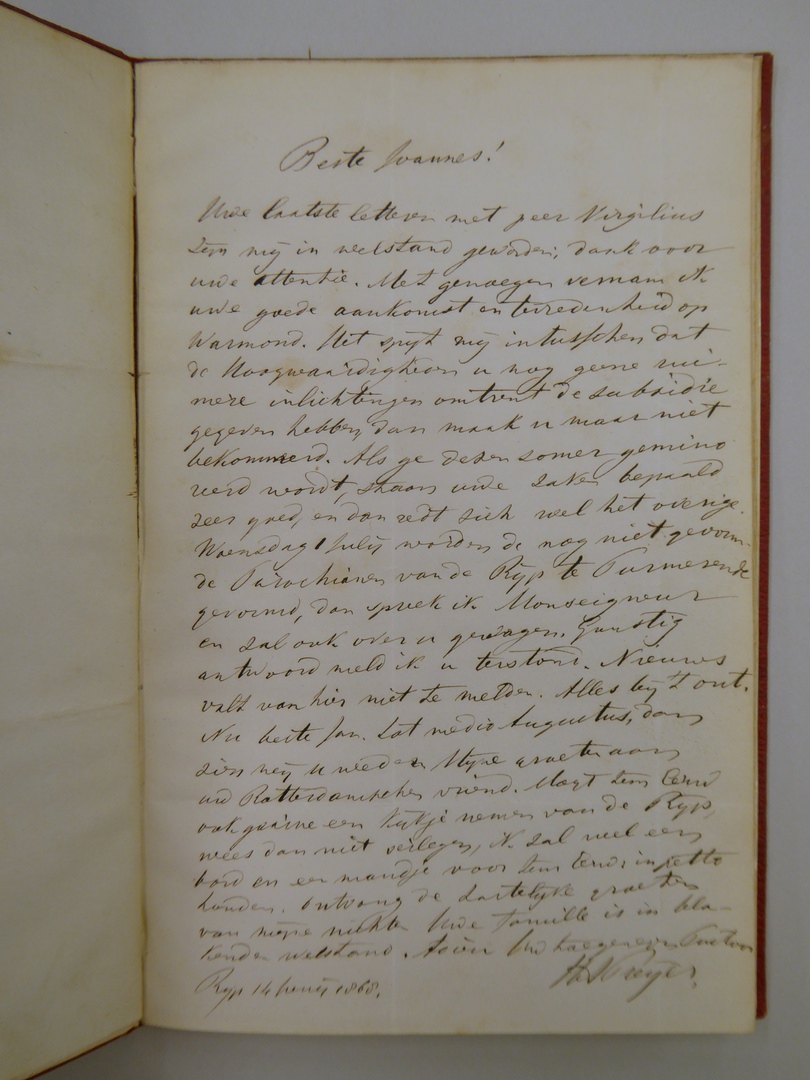 Beste Joannes!
Uwe laatste letteren met peer Virgilius
zijn mij in welstand geworden; dank voor
uwe attentie. Met genoegen vernam ik
uwe goede aankomst en tevredenheid op
Warmond. Het spijt mij intusschen dat
de Hoogwaardigheden u nog geene rui-
mere inlichtingen omtrent de subsidie
gegeven hebben, dan maak u maar niet
bekommerd. Als ge dezen zomer gemino
reerd wordt, staan uwe zaken bepaald
zeer goed, en dan redt zich wel het overige.
Woensdag 1 Julij worden de nog niet gevorm-
de Parochianen van de Rijp te Purmerende
gevormd, dan spreek ik Monseigneur
en zal ook over u gewagen. Gunstig
antwoord meld ik u terstond. Nieuws
valt van hier niet te melden. Alles bij 't out.
Nu beste Jan. tot medio Augustus, dan
zien wij u weder. Mijne groeten aan
uw Rotterdamschen vriend. Mogt zijn Eerw
ook gaarne een kijkje nemen van de Rijp,
wees dan niet verlegen, ik zal wel een
bord en een mandje voor zijn Eerw. in petto
houden. Ontvang de hartelijke groeten
van mijne nichten Uwe familie is in bla-
kenden welstand. Adieu Uw toegenegen Pastoor
Rijp 14 Junij 1868.